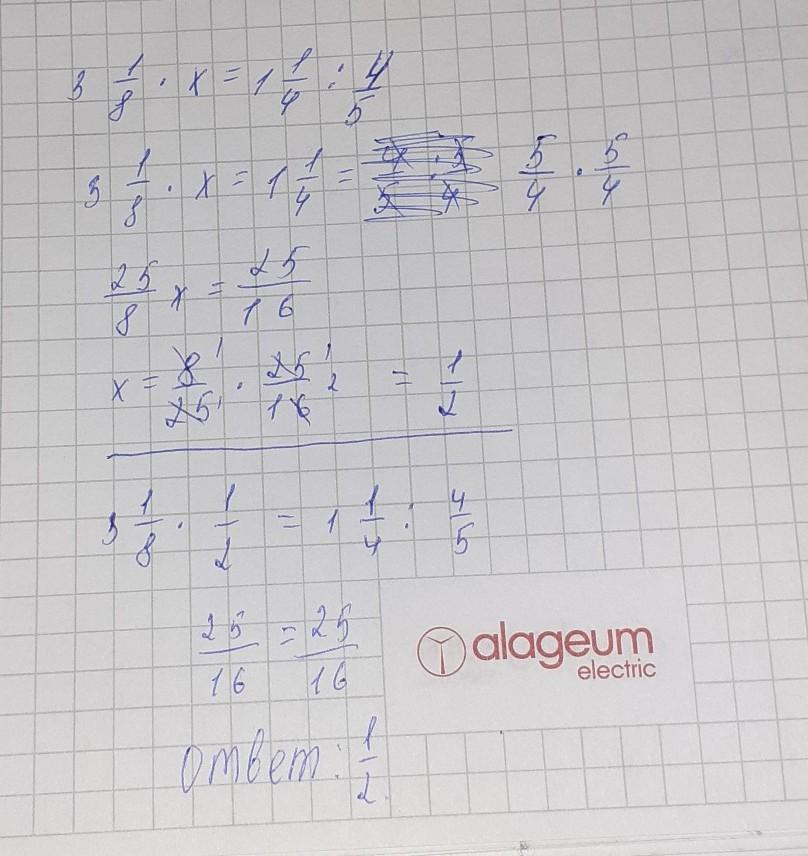 3 1/8 · x = 1 1/4 : 4/5
3 1/8 · x = 1 1/4 = 5/4 · 5/4
25/8 x = 25/16
x = 8/25 · 25/16 = 1/2
3 1/8 · 1/2 = 1 1/4 : 4/5
25/16 = 25/16
alageum
electric
ответ: 1/2